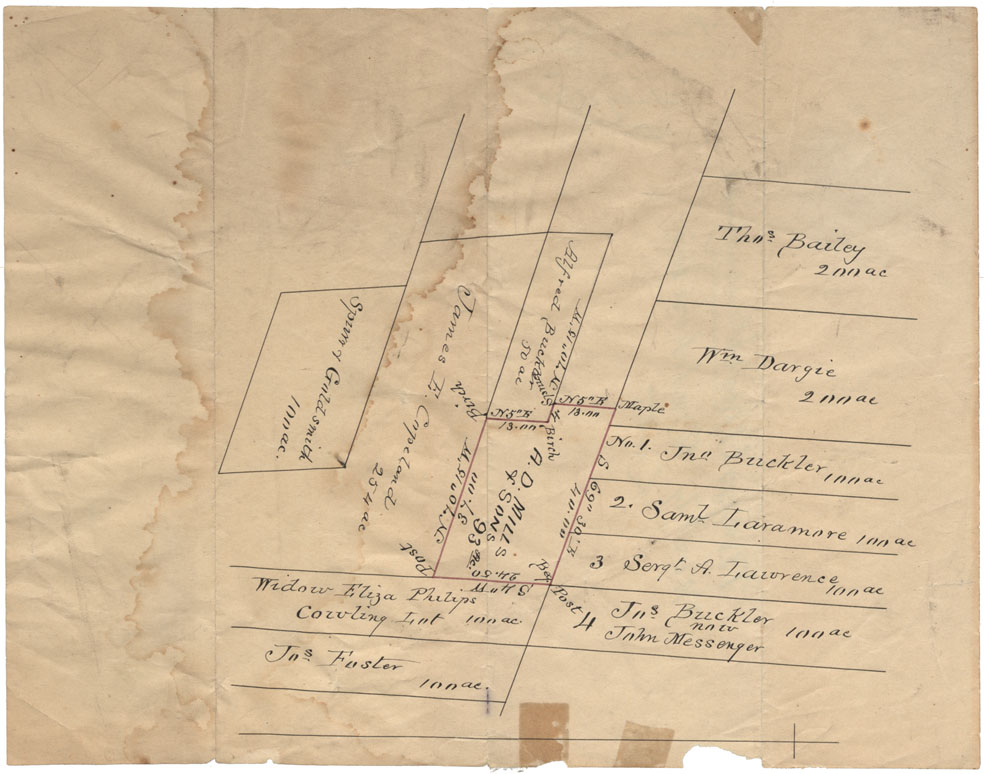 Thos. Bailey
200 ac
Wm Dargie
200 ac
No. 1. Jno Buckler
100 ac
2. Saml Laramore 100 ac
3 Sergt. A. Lawrence
100 ac
4 Jns Buckler 100 ac
now
John Messenger
Alfred Buckler
50 ac
N 5° E
13.00
Maple
N 5° E
13.00
Birch
Birch
James E. Copeland
254 ac
100 ac.
A. D. MILLS
& SONS
93 ac.
S 69° 30' E
40.00
24.50
S 4° W
Post
Post
Widow Eliza Philips
Cowling Lot 100 ac.
Jns Foster
100 ac.